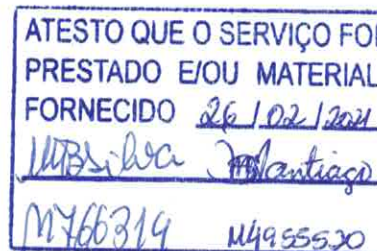 ATESTO QUE O SERVIÇO FOI
PRESTADO E/OU MATERIAL
FORNECIDO 26/02/2021
MBSilva MSantiago
M766319 M4955530